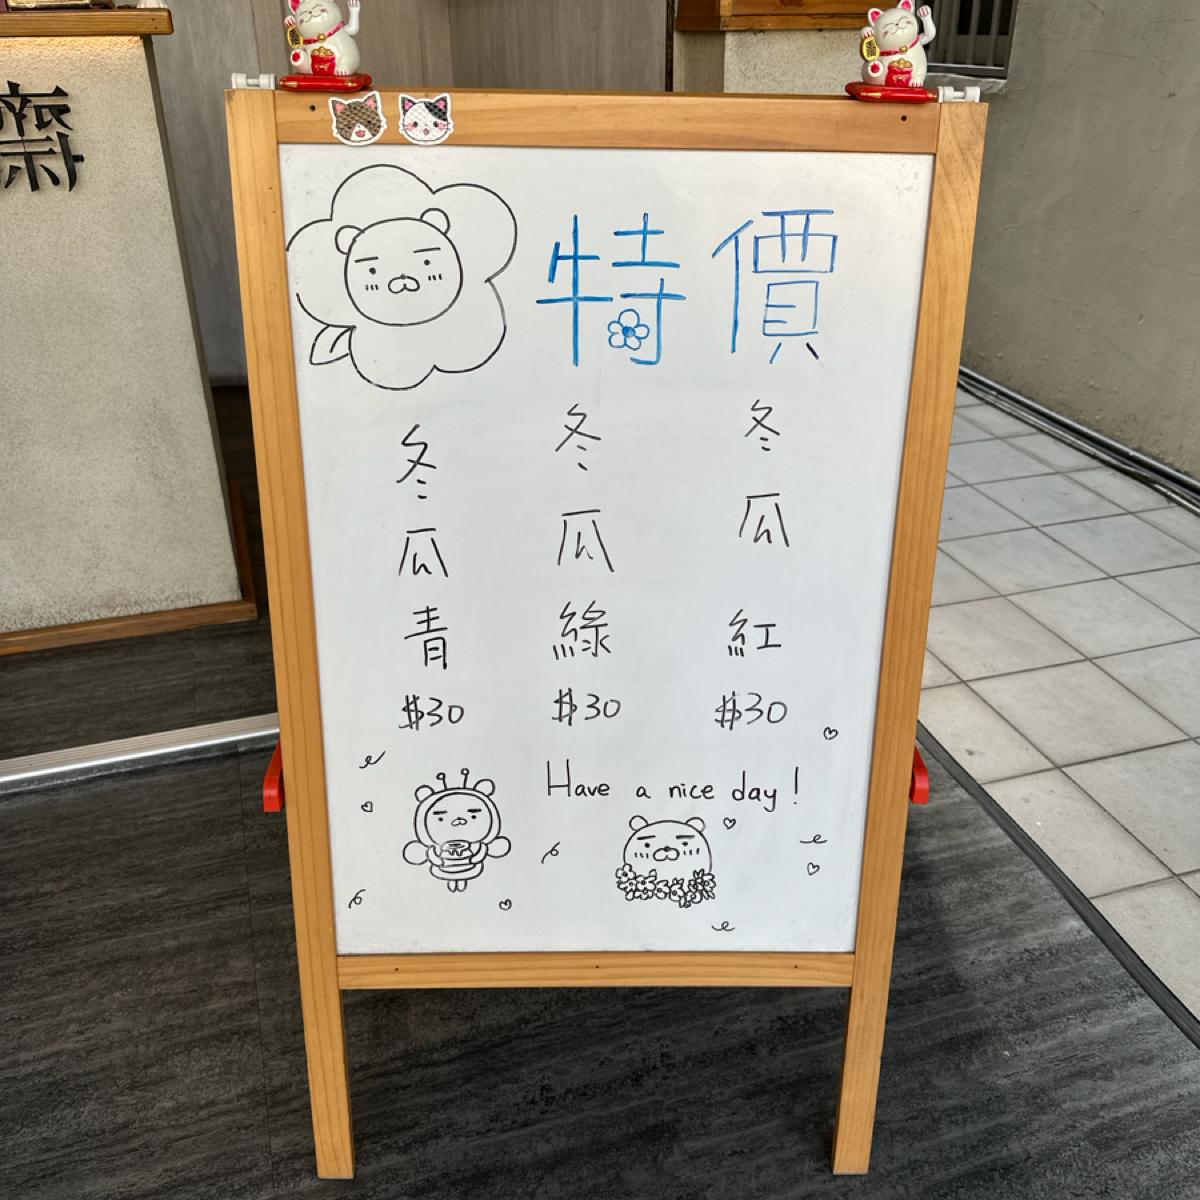 特價
冬瓜紅
$30
冬瓜綠
$30
冬瓜青
$30
Have a nice day!